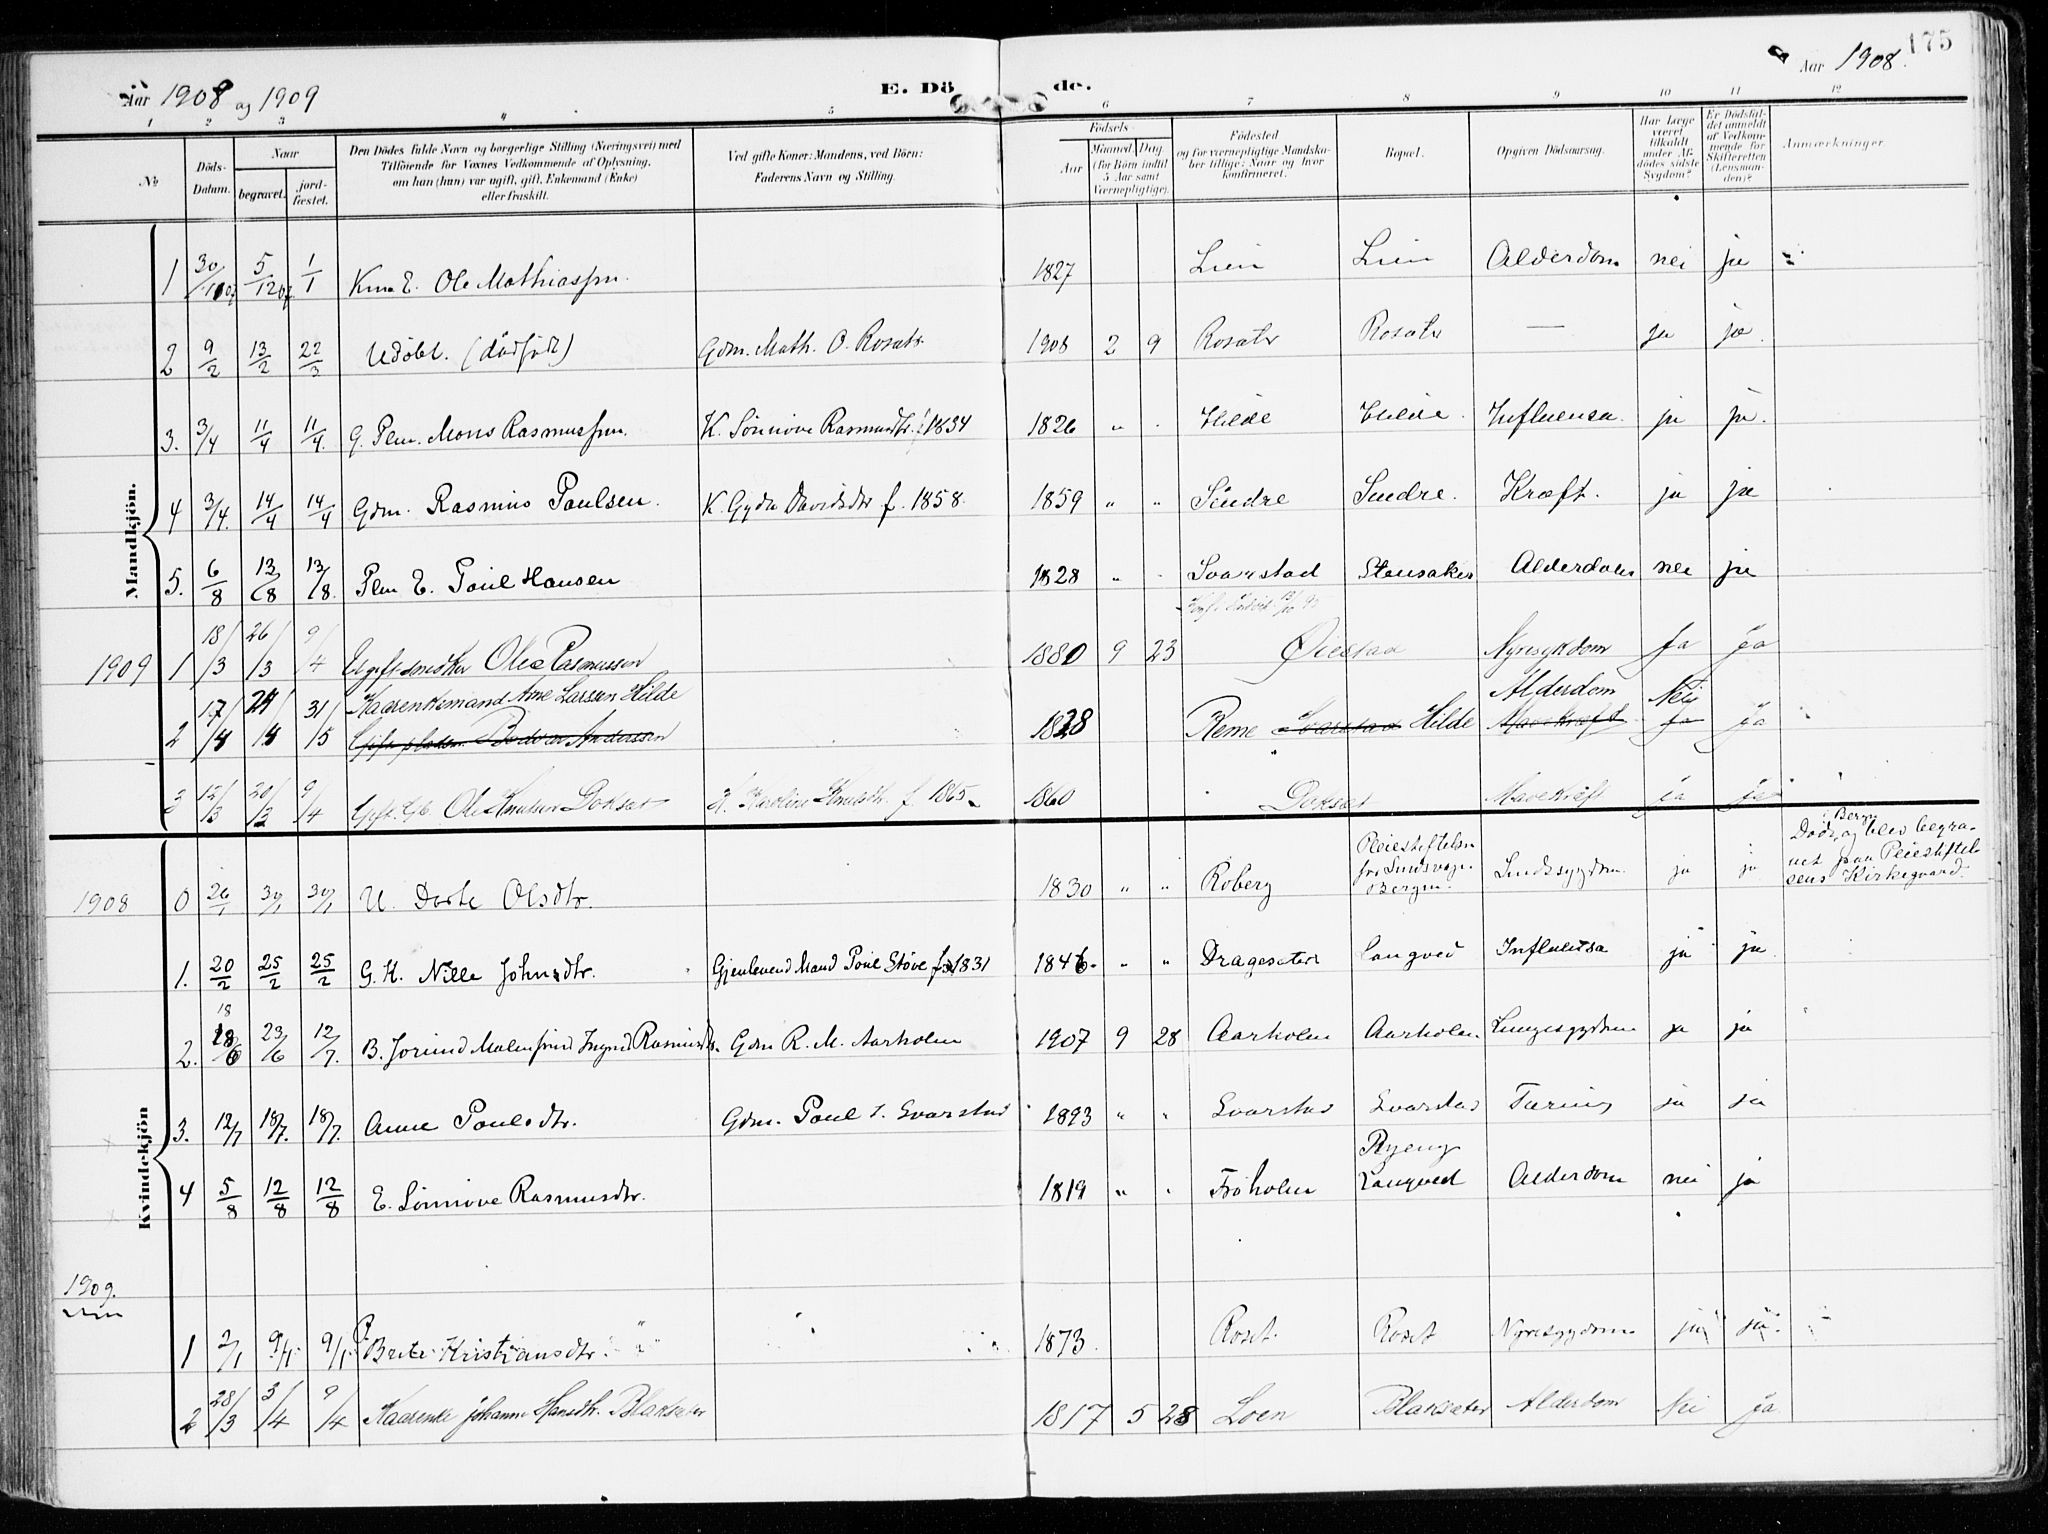 175
Aar 1908 og 1909
E. Dö de.
Aar 1908.
1 2 3 4 5 6 7 8 9 10 11 12
No
Döds-Datum.
Naar
begravet.
jord-fæstet.
Den Dödes fulde Navn og borgerlige Stilling (Næringsvei) med
Tilföiende for Voxnes Vedkommende af Oplysning,
om han (hun) var ugift, gift, Enkemand (Enke)
eller fraskilt.
Ved gifte Koner: Mandens, ved Börn:
Faderens Navn og Stilling.
Födsels-
Aar
Maaned. Dag.
(for Börn indtil
5 Aar samt
Værnepligtige).
Födested
og for værnepligtige Mandska-
ber tillige: Naar og hvor
konfirmeret.
Bopæl.
Opgiven Dödsaarsag.
Har Læge
været
tilkaldt
under Af-
dödes sidste
Sygdom?
Er Dödsfal-
det anmeldt
af Vedkom-
mende for
Skifteretten
(Lensman-
den)?
Anmærkninger.
Mandkjön.
1 30/11 07 5/12 07 1/1 Km E. Ole Mathiassen. 1827 Lien Lien Alderdom nei ja
2 9/2 13/2 22/3 Udöbt. (dödfödt) Gdm. Math. O. Rosæte 1908 2 9 Rosæte Rosæte — ja ja
3. 3/4 11/4 11/4 G. Plm. Mons Rasmussen. K. Sönnöve Rasmusdtr. f. 1834 1826 " Hilde Hilde. Influensa. ja ja.
4 3/4. 14/4 14/4 Gdm. Rasmus Paulsen. K. Gyda Davidsdtr f. 1858. 1859 " " Sindre Sindre. Kræft. ja ja
5. 6/8 13/8 13/8. Plm E. Paul Hansen 1828 " Svarstad Stensaker Alderdom nei ja
1909 1 18/3 26/3 9/4 Ugift snedker Ole Rasmussen 1880 9 23 Öiestad Nyresykdom Ja Ja
2 17/4 24/4 31/5 Kaarenkemand Arne Larssen Hilde 1828 Reme Svarstad Hilde Alderdom Mavekræft Nei Ja Ja
Gift pladsm. Andersen
3 12/3 20/3 9/4 Gift. Gb. Ole Knutsen Doksæt K. Karoline Knutsdtr. f. 1865 1860 Doksæt Mavekræft ja ja
Kvindekjön
1908 0 26/1 30/1 30/1 U. Dorte Olsdtr. 1830 " " Roberg Pleiestiftelsen for Sindssyge. Bergen. Sindssygdom. ja ja Döde, i Bergen og blev begra-
vet paa Pleiestiftel-
sens Kirkegaard.
1. 20/2 25/2 25/2 G. K. Nille Johnsdtr. Gjenlevend Mand Poul Stöve f. 1831 1846. " " Dragesæter Langved Influensa ja ja
2. 18/6 23/6 12/7. B. Jorund Malenfrid Ingrid Rasmusdtr. Gdm R. M. Aarholen 1907 9 28 Aarholen Aarholen Lungesygdom ja ja
18
3. 12/7 18/7. 18/7. Anne Paulsdtr. Gdm. Paul I. Svarstad 1893 " " Svarstad Svarstad Tæring ja ja
4 5/8 12/8 12/8 E. Sönnöve Rasmusdtr. 1819 " Fröholen Ryeng Langved Alderdom nei ja
1909.
1 2/1 9/1 9/1 P. Brite Kristiansdtr. 1873. Roset. Roset Nyresygdom ja ja
2 28/3 3/4 9/4 Kaarenke Johanne Hansdtr. Blaksæter 1817 5 28 Loen Blaksæter Alderdom Nei Ja